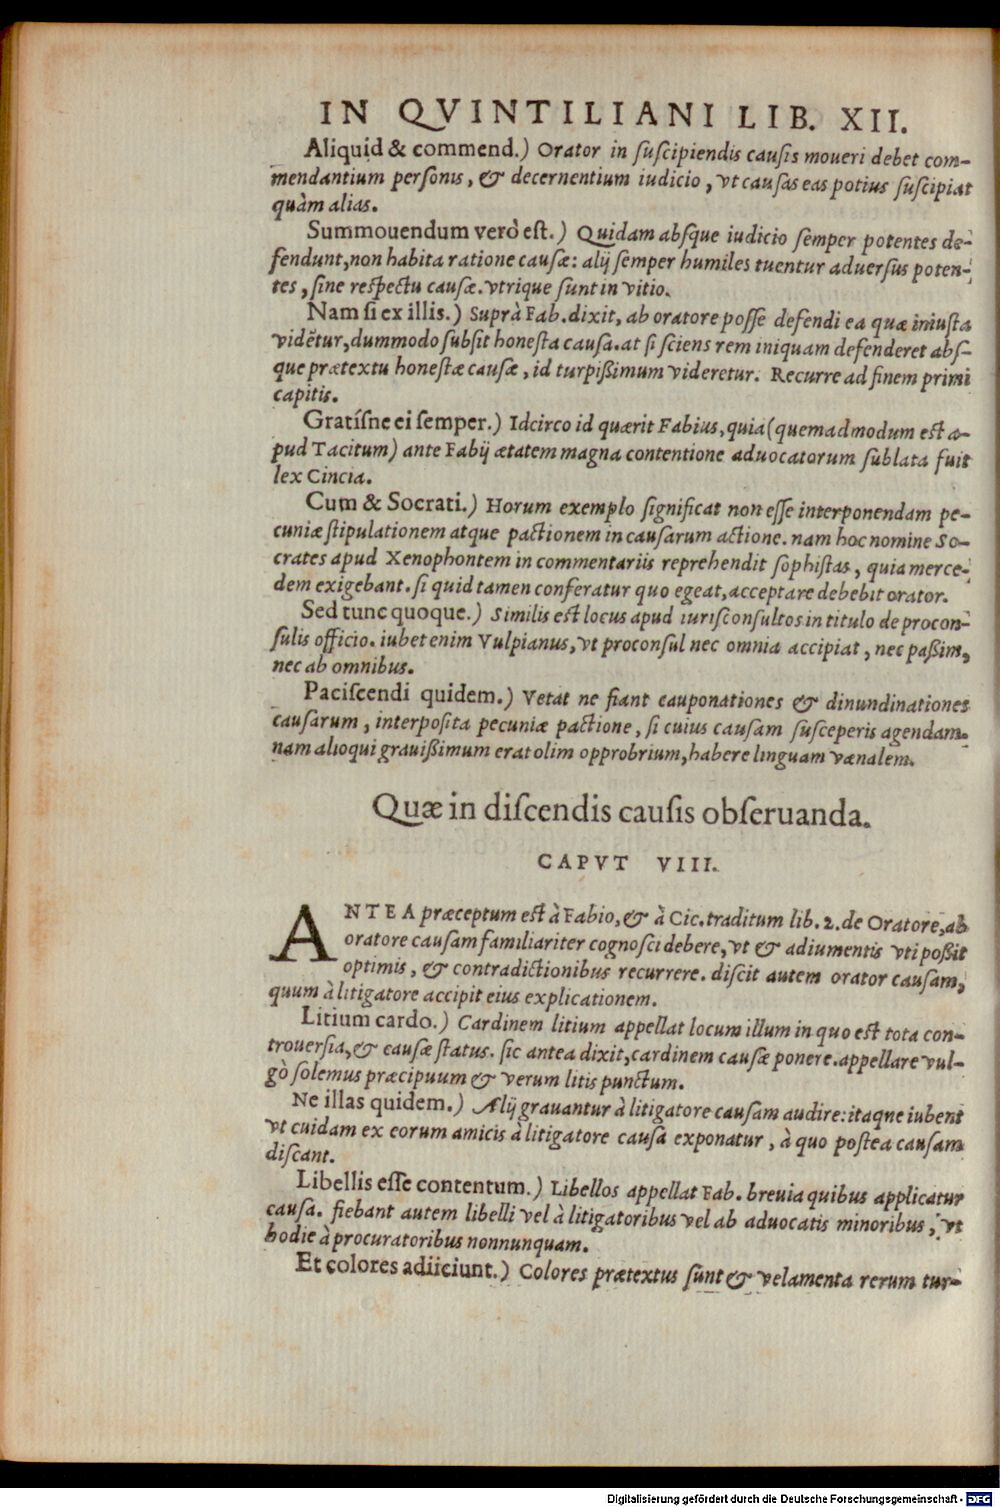 IN QVINTILIANI LIB. XII.
Aliquid & commend.) Orator in ſuſcipiendis cauſis moueri debet com-
mendantium perſonis, & decernentium iudicio, vt cauſas eas potius ſuſcipiat
quàm alias.
Summouendum verò eſt.) Quidam abſque iudicio ſemper potentes de-
fendunt, non habita ratione cauſæ: alij ſemper humiles tuentur aduerſus poten-
tes, ſine reſpectu cauſæ. vtrique ſunt in vitio.
Nam ſi ex illis.) Suprà Fab. dixit, ab oratore poſſe defendi ea quæ iniuſta
vidẽtur, dummodo ſubſit honeſta cauſa. at ſi ſciens rem iniquam defenderet abſ-
que prætextu honeſtæ cauſæ, id turpißimum videretur. Recurre ad finem primi
capitis.
Gratíſne ei ſemper.) Idcirco id quærit Fabius, quia (quemadmodum eſt a-
pud Tacitum) ante Fabij ætatem magna contentione aduocatorum ſublata fuit
lex Cincia.
Cum & Socrati.) Horum exemplo ſignificat non eſſe interponendam pe-
cuniæ ſtipulationem atque pactionem in cauſarum actione. nam hoc nomine So-
crates apud Xenophontem in commentariis reprehendit ſophiſtas, quia merce-
dem exigebant. ſi quid tamen conferatur quo egeat, acceptare debebit orator.
Sed tunc quoque.) Similis eſt locus apud iuriſconſultos in titulo de procon-
ſulis officio. iubet enim Vulpianus, vt proconſul nec omnia accipiat, nec paßim,
nec ab omnibus.
Paciſcendi quidem.) Vetat ne fiant cauponationes & dinundinationes
cauſarum, interpoſita pecuniæ pactione, ſi cuius cauſam ſuſceperis agendam.
nam alioqui grauißimum erat olim opprobrium, habere linguam vænalem.
Quæ in diſcendis cauſis obſeruanda.
CAPVT VIII.
ANTEA præceptum eſt à Fabio, & à Cic. traditum lib. 2. de Oratore, ab
oratore cauſam familiariter cognoſci debere, vt & adiumentis vti poßit
optimis, & contradictionibus recurrere. diſcit autem orator cauſam,
quum à litigatore accipit eius explicationem.
Litium cardo.) Cardinem litium appellat locum illum in quo eſt tota con-
trouerſia, & cauſæ ſtatus. ſic antea dixit, cardinem cauſæ ponere. appellare vul-
gò ſolemus præcipuum & verum litis punctum.
Ne illas quidem.) Alij grauantur à litigatore cauſam audire: itaque iubent
vt cuidam ex eorum amicis à litigatore cauſa exponatur, à quo poſtea cauſam
diſcant.
Libellis eſſe contentum.) Libellos appellat Fab. breuia quibus applicatur
cauſa. fiebant autem libelli vel à litigatoribus vel ab aduocatis minoribus, vt
hodie à procuratoribus nonnunquam.
Et colores adiiciunt.) Colores prætextus ſunt & velamenta rerum tur-
Digitalisierung gefördert durch die Deutsche Forschungsgemeinschaft - DFG